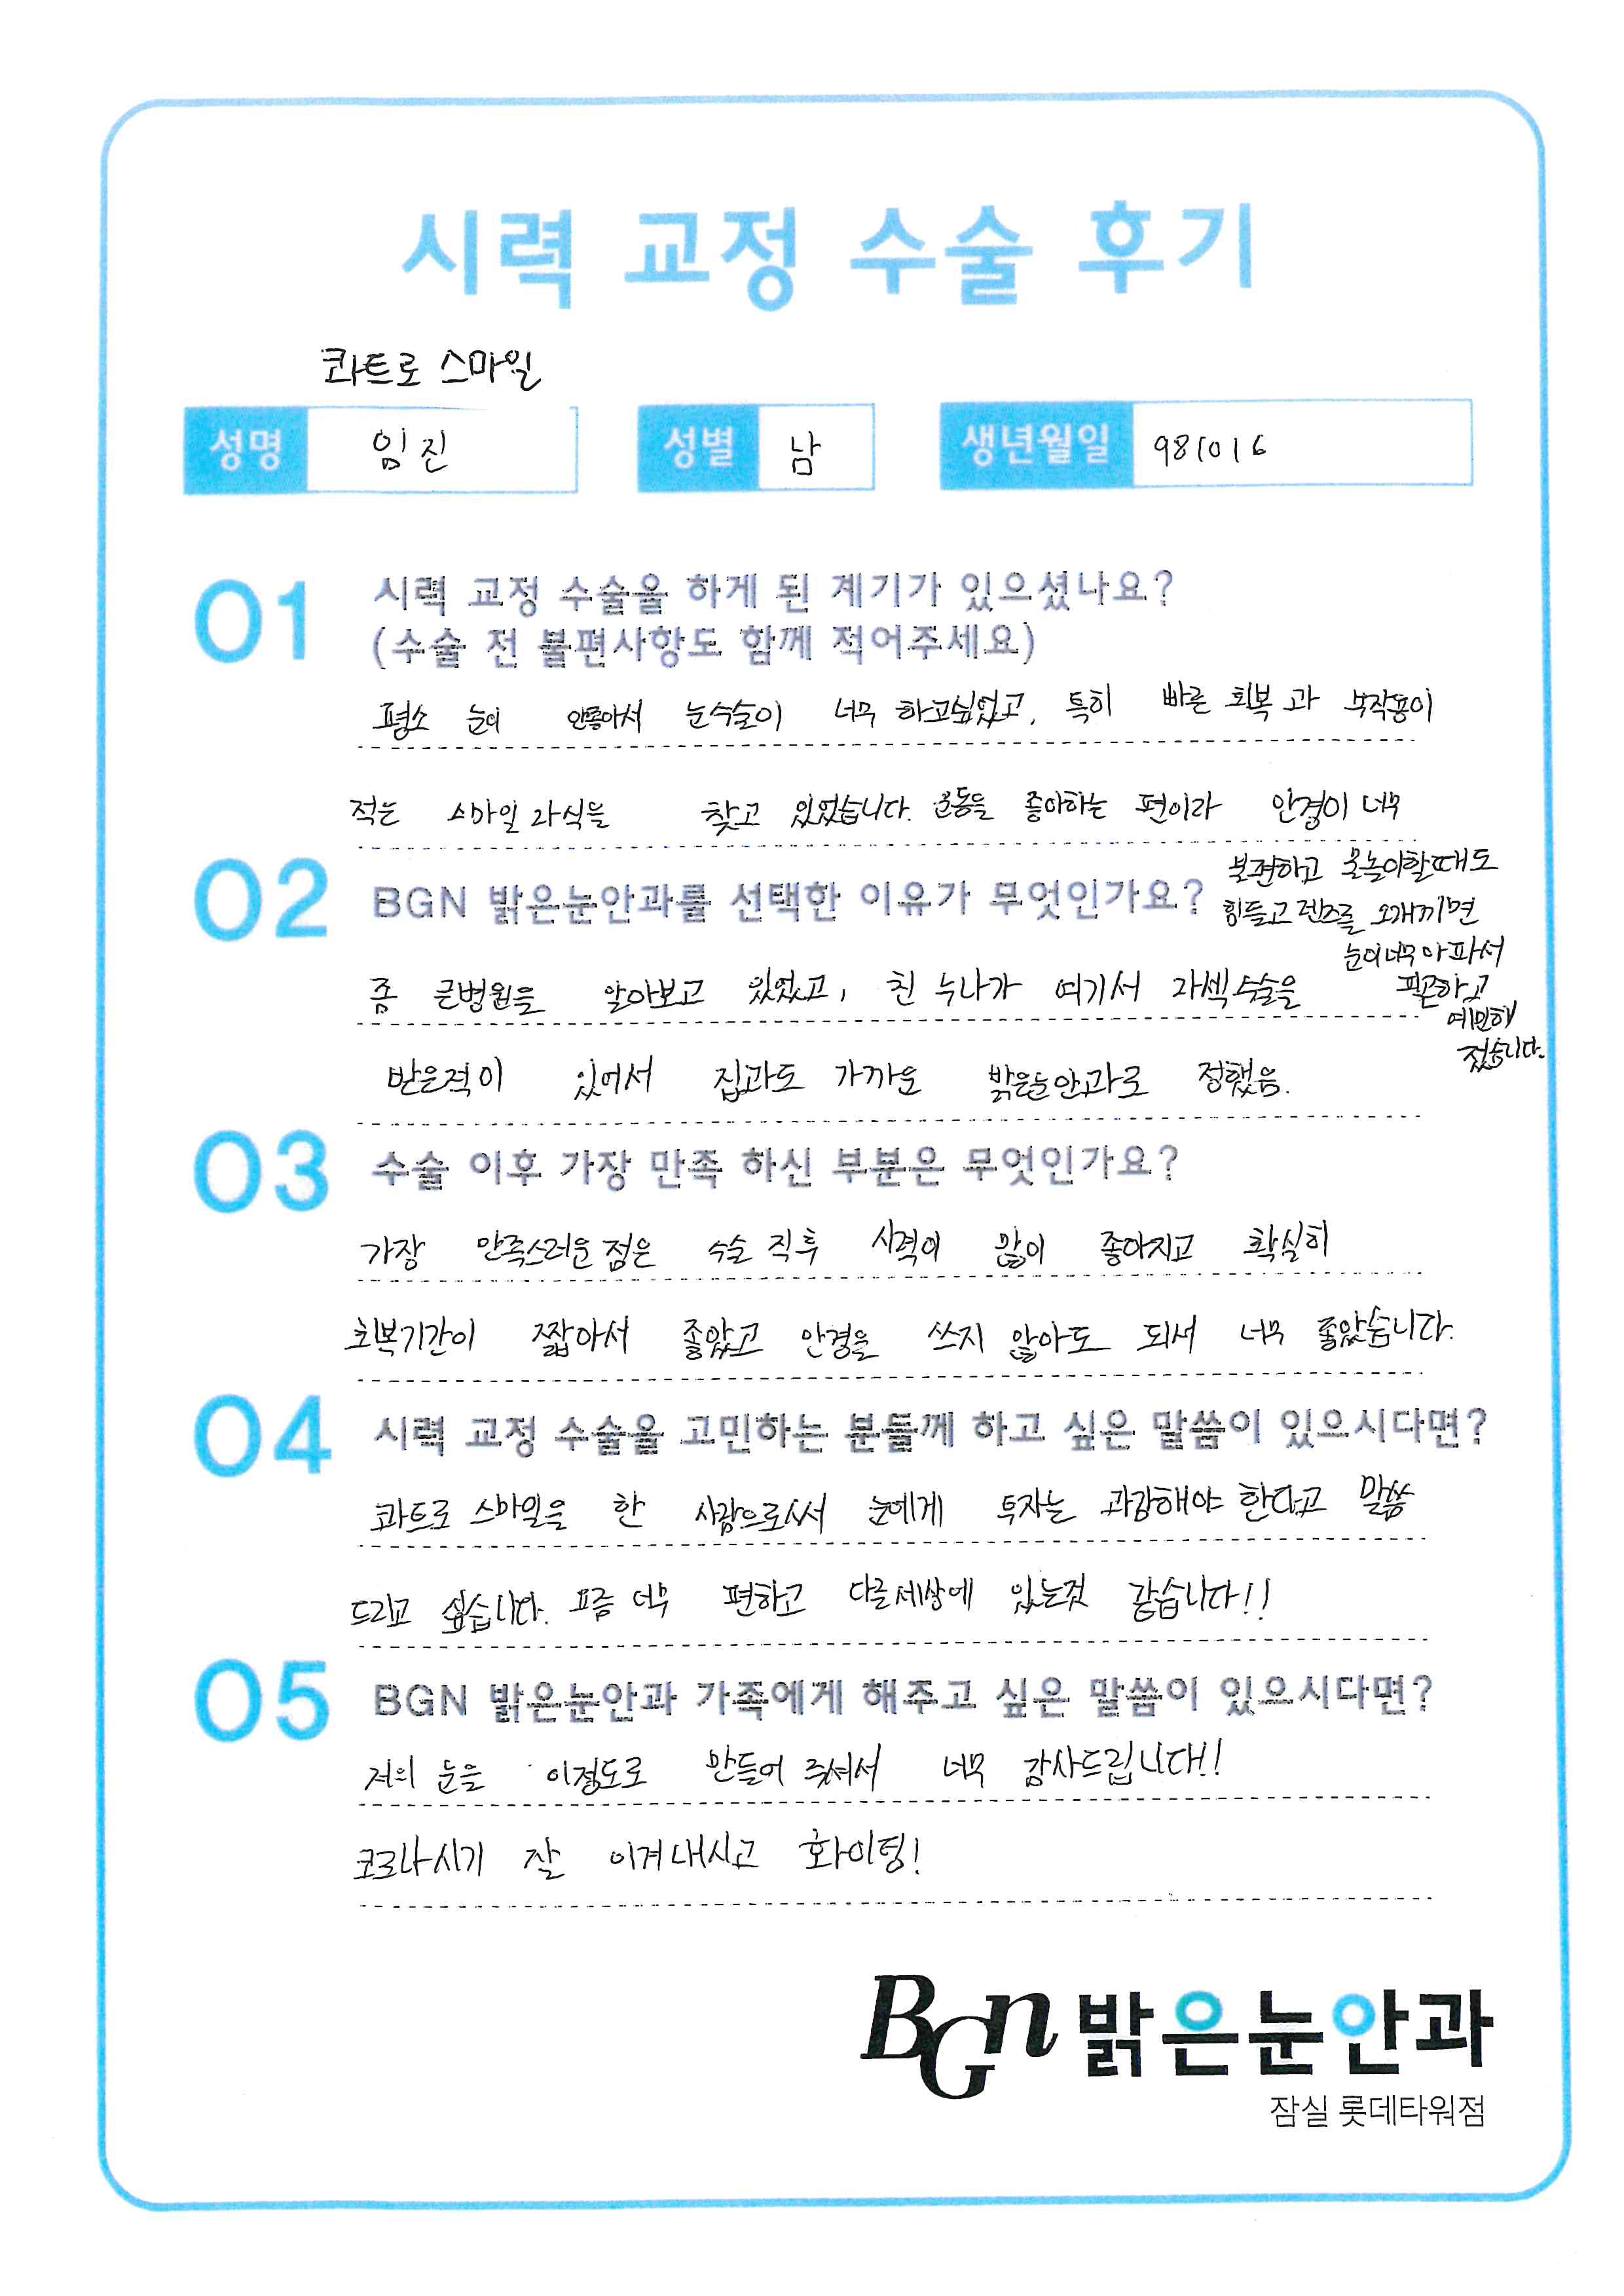 시력 교정 수술 후기
콰트로 스마일
성명 임진 성별 남 생년월일 981016
01 시력 교정 수술을 하게 된 계기가 있으셨나요?
(수술 전 불편사항도 함께 적어주세요)
평소 눈이 안좋아서 눈수술이 너무 하고싶었고, 특히 빠른 회복과 부작용이
적은 스마일라식을 찾고 있었습니다. 운동을 좋아하는 편이라 안경이 너무
불편하고 물놀이할때도
힘들고 렌즈를 오래끼면
눈이너무아파서
피곤하고
예민해
졌습니다.
02 BGN 밝은눈안과를 선택한 이유가 무엇인가요?
좀 큰병원을 알아보고 있었고, 친누나가 여기서 라섹수술을
받은적이 있어서 집과도 가까운 밝은눈안과로 정했음.
03 수술 이후 가장 만족 하신 부분은 무엇인가요?
가장 만족스러운점은 수술 직후 시력이 많이 좋아지고 확실히
회복기간이 짧아서 좋았고 안경을 쓰지 않아도 되서 너무 좋았습니다.
04 시력 교정 수술을 고민하는 분들께 하고 싶은 말씀이 있으시다면?
콰트로 스마일을 한 사람으로서 눈에게 투자는 과감해야 한다고 말씀
드리고 싶습니다. 요즘 너무 편하고 다른세상에 있는것 같습니다!!
05 BGN 밝은눈안과 가족에게 해주고 싶은 말씀이 있으시다면?
저의 눈을 이정도로 만들어 주셔서 너무 감사드립니다!!
코로나시기 잘 이겨내시고 화이팅!
BGn 밝은눈안과
잠실 롯데타워점